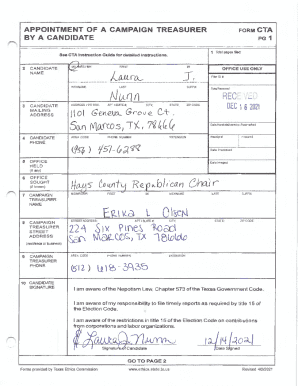 APPOINTMENT OF A CAMPAIGN TREASURER BY A CANDIDATE
FORM CTA
PG 1
See CTA Instruction Guide for detailed instructions.
1 Total pages filed:
2 CANDIDATE NAME
MS/MRS/MR FIRST MI
Laura J.
NICKNAME LAST SUFFIX
Nunn
OFFICE USE ONLY
Filer ID #
Date Received
RECEIVED
DEC 16 2021
3 CANDIDATE MAILING ADDRESS
ADDRESS / PO BOX; APT / SUITE #; CITY; STATE; ZIP CODE
1101 Geneva Grove Ct.
San Marcos, TX, 78666
Date Hand-delivered or Postmarked
4 CANDIDATE PHONE
AREA CODE PHONE NUMBER EXTENSION
457-6288
Receipt #
Amount $
Date Processed
5 OFFICE HELD
(if any)
Date Imaged
6 OFFICE SOUGHT
(if known)
Hays County Republican Chair
7 CAMPAIGN TREASURER NAME
MS/MRS/MR FIRST MI NICKNAME LAST SUFFIX
Erika L Olson
8 CAMPAIGN TREASURER STREET ADDRESS
(residence or business)
STREET ADDRESS; APT / SUITE #; CITY; STATE; ZIP CODE
224 Six Pines Road
San Marcos, TX 78666
9 CAMPAIGN TREASURER PHONE
AREA CODE PHONE NUMBER EXTENSION
(512) 618-3935
10 CANDIDATE SIGNATURE
I am aware of the Nepotism Law, Chapter 573 of the Texas Government Code.
I am aware of my responsibility to file timely reports as required by title 15 of the Election Code.
I am aware of the restrictions in title 15 of the Election Code on contributions from corporations and labor organizations.
Laura J. Nunn
12/14/2021
Signature of Candidate
Date Signed
GO TO PAGE 2
Forms provided by Texas Ethics Commission
www.ethics.state.tx.us